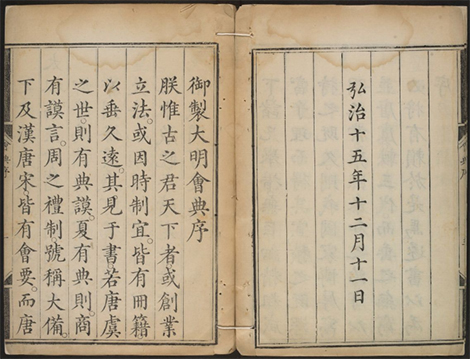 弘治十五年十二月十一日
御製大明會典序
朕惟古之君天下者或創業
立法。或因時制宜。皆有冊籍
以垂久遠。其見于書若唐虞
之世。則有典謨。夏有典則。商
有謨言。周之禮制號稱大備。
下及漢唐宋皆有會要。而唐
會典序